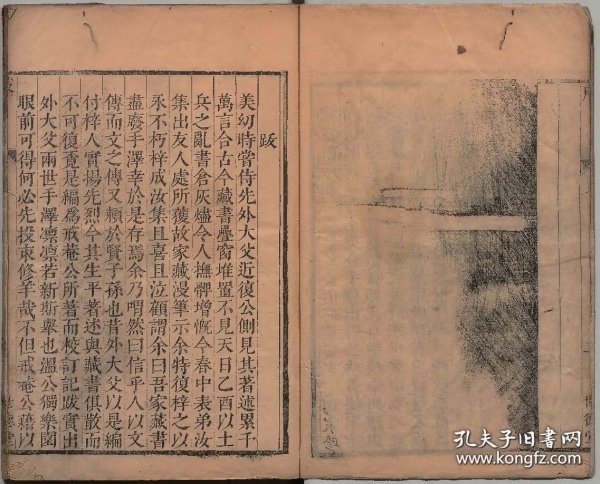 跋
美幼時嘗侍先外大父近復公側見其著述累千
萬言合古今藏書疊窗堆置不見天日乙酉以土
兵之亂書倉灰燼令人撫髀增慨今春中表弟汝
集出友人處所獲故家藏漫筆示余特復梓之以
永不朽梓成汝集且喜且泣顧謂余曰吾家藏書
盡廢手澤幸於是存焉余乃喟然曰信乎人以文
傳而文之傳又賴於賢子孫也昔外大父以是編
付梓人實揚先烈今其生平著述與藏書俱散而
不可復覓是編為戒菴公所著而校訂記跋實出
外大父兩世手澤凛凛若新斯舉也溫公獨樂園
眼前可得何必先投束修羊哉不但戒菴公藉以
孔夫子旧書网
www.kongfz.com